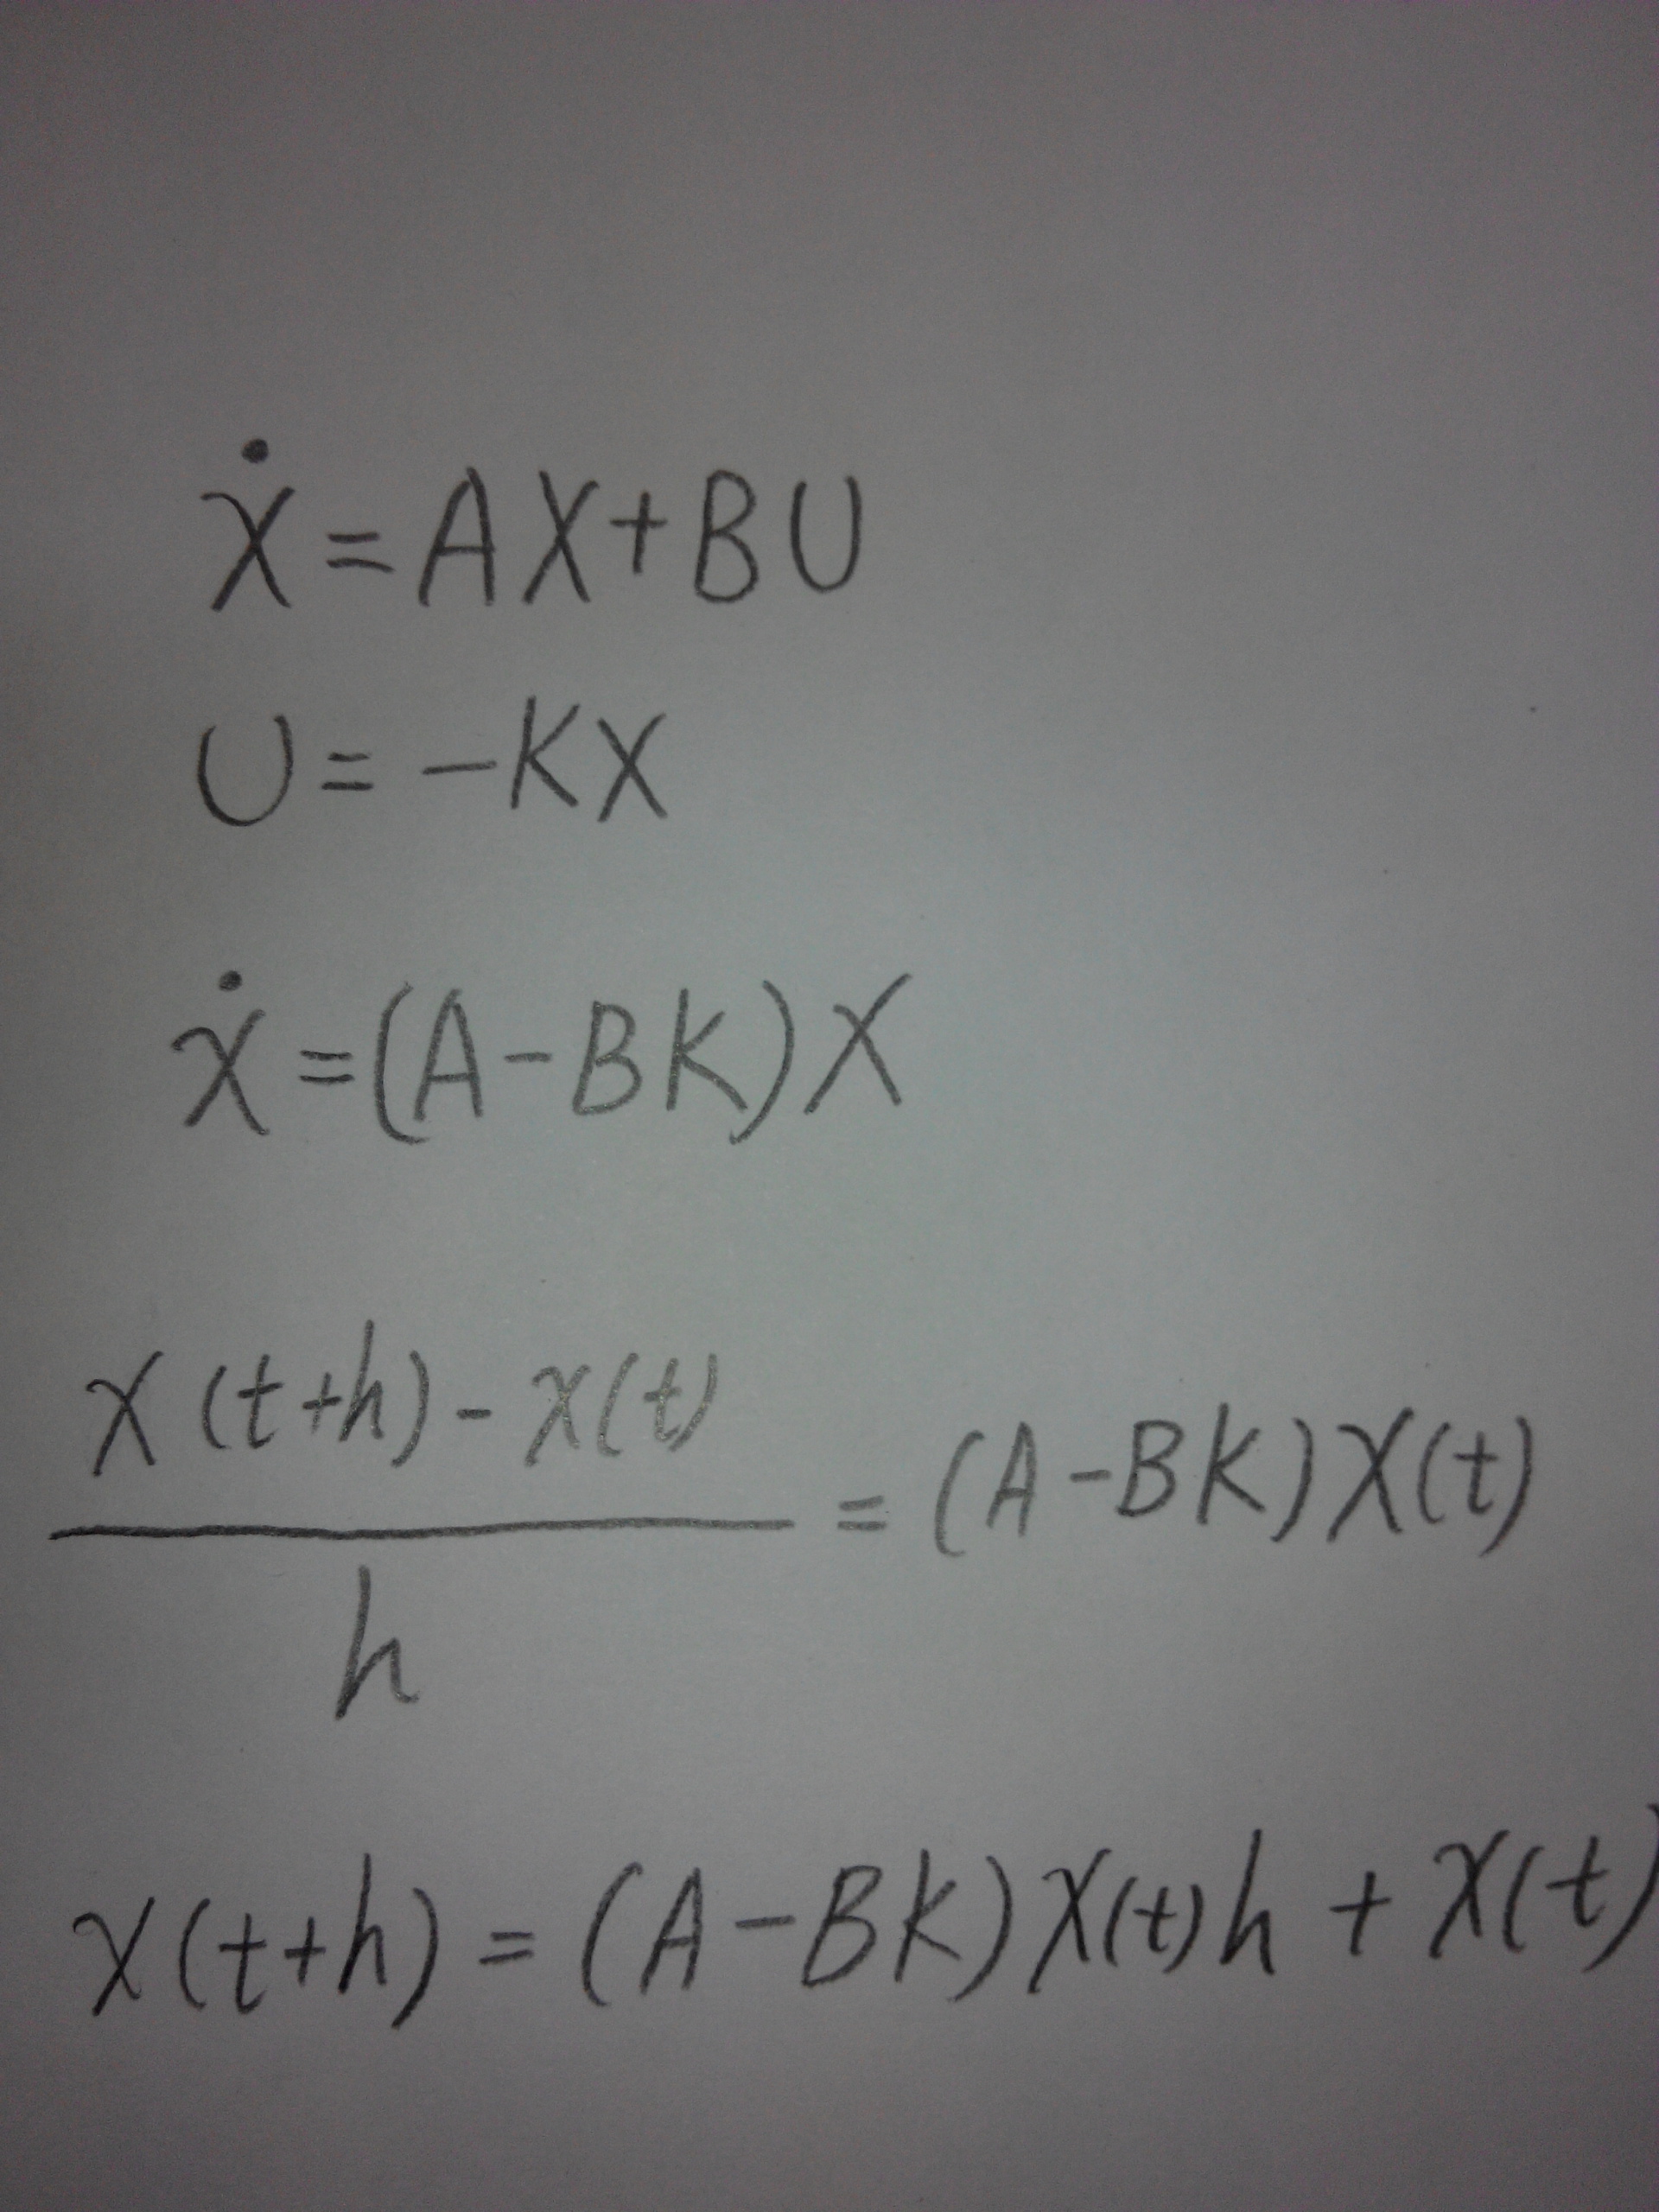 Ẋ = AX + BU
U = -KX
Ẋ = (A - BK)X
X(t+h) - X(t)
――――――― = (A - BK)X(t)
h
X(t+h) = (A - BK)X(t)h + X(t)